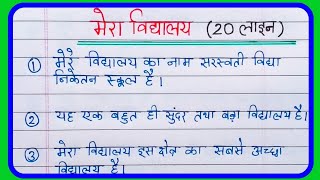 मेरा विद्यालय (20 लाइन)
① मेरे विद्यालय का नाम सरस्वती विद्या
निकेतन स्कूल है।
② यह एक बहुत ही सुंदर तथा बड़ा विद्यालय है।
③ मेरा विद्यालय इस क्षेत्र का सबसे अच्छा
विद्यालय है।